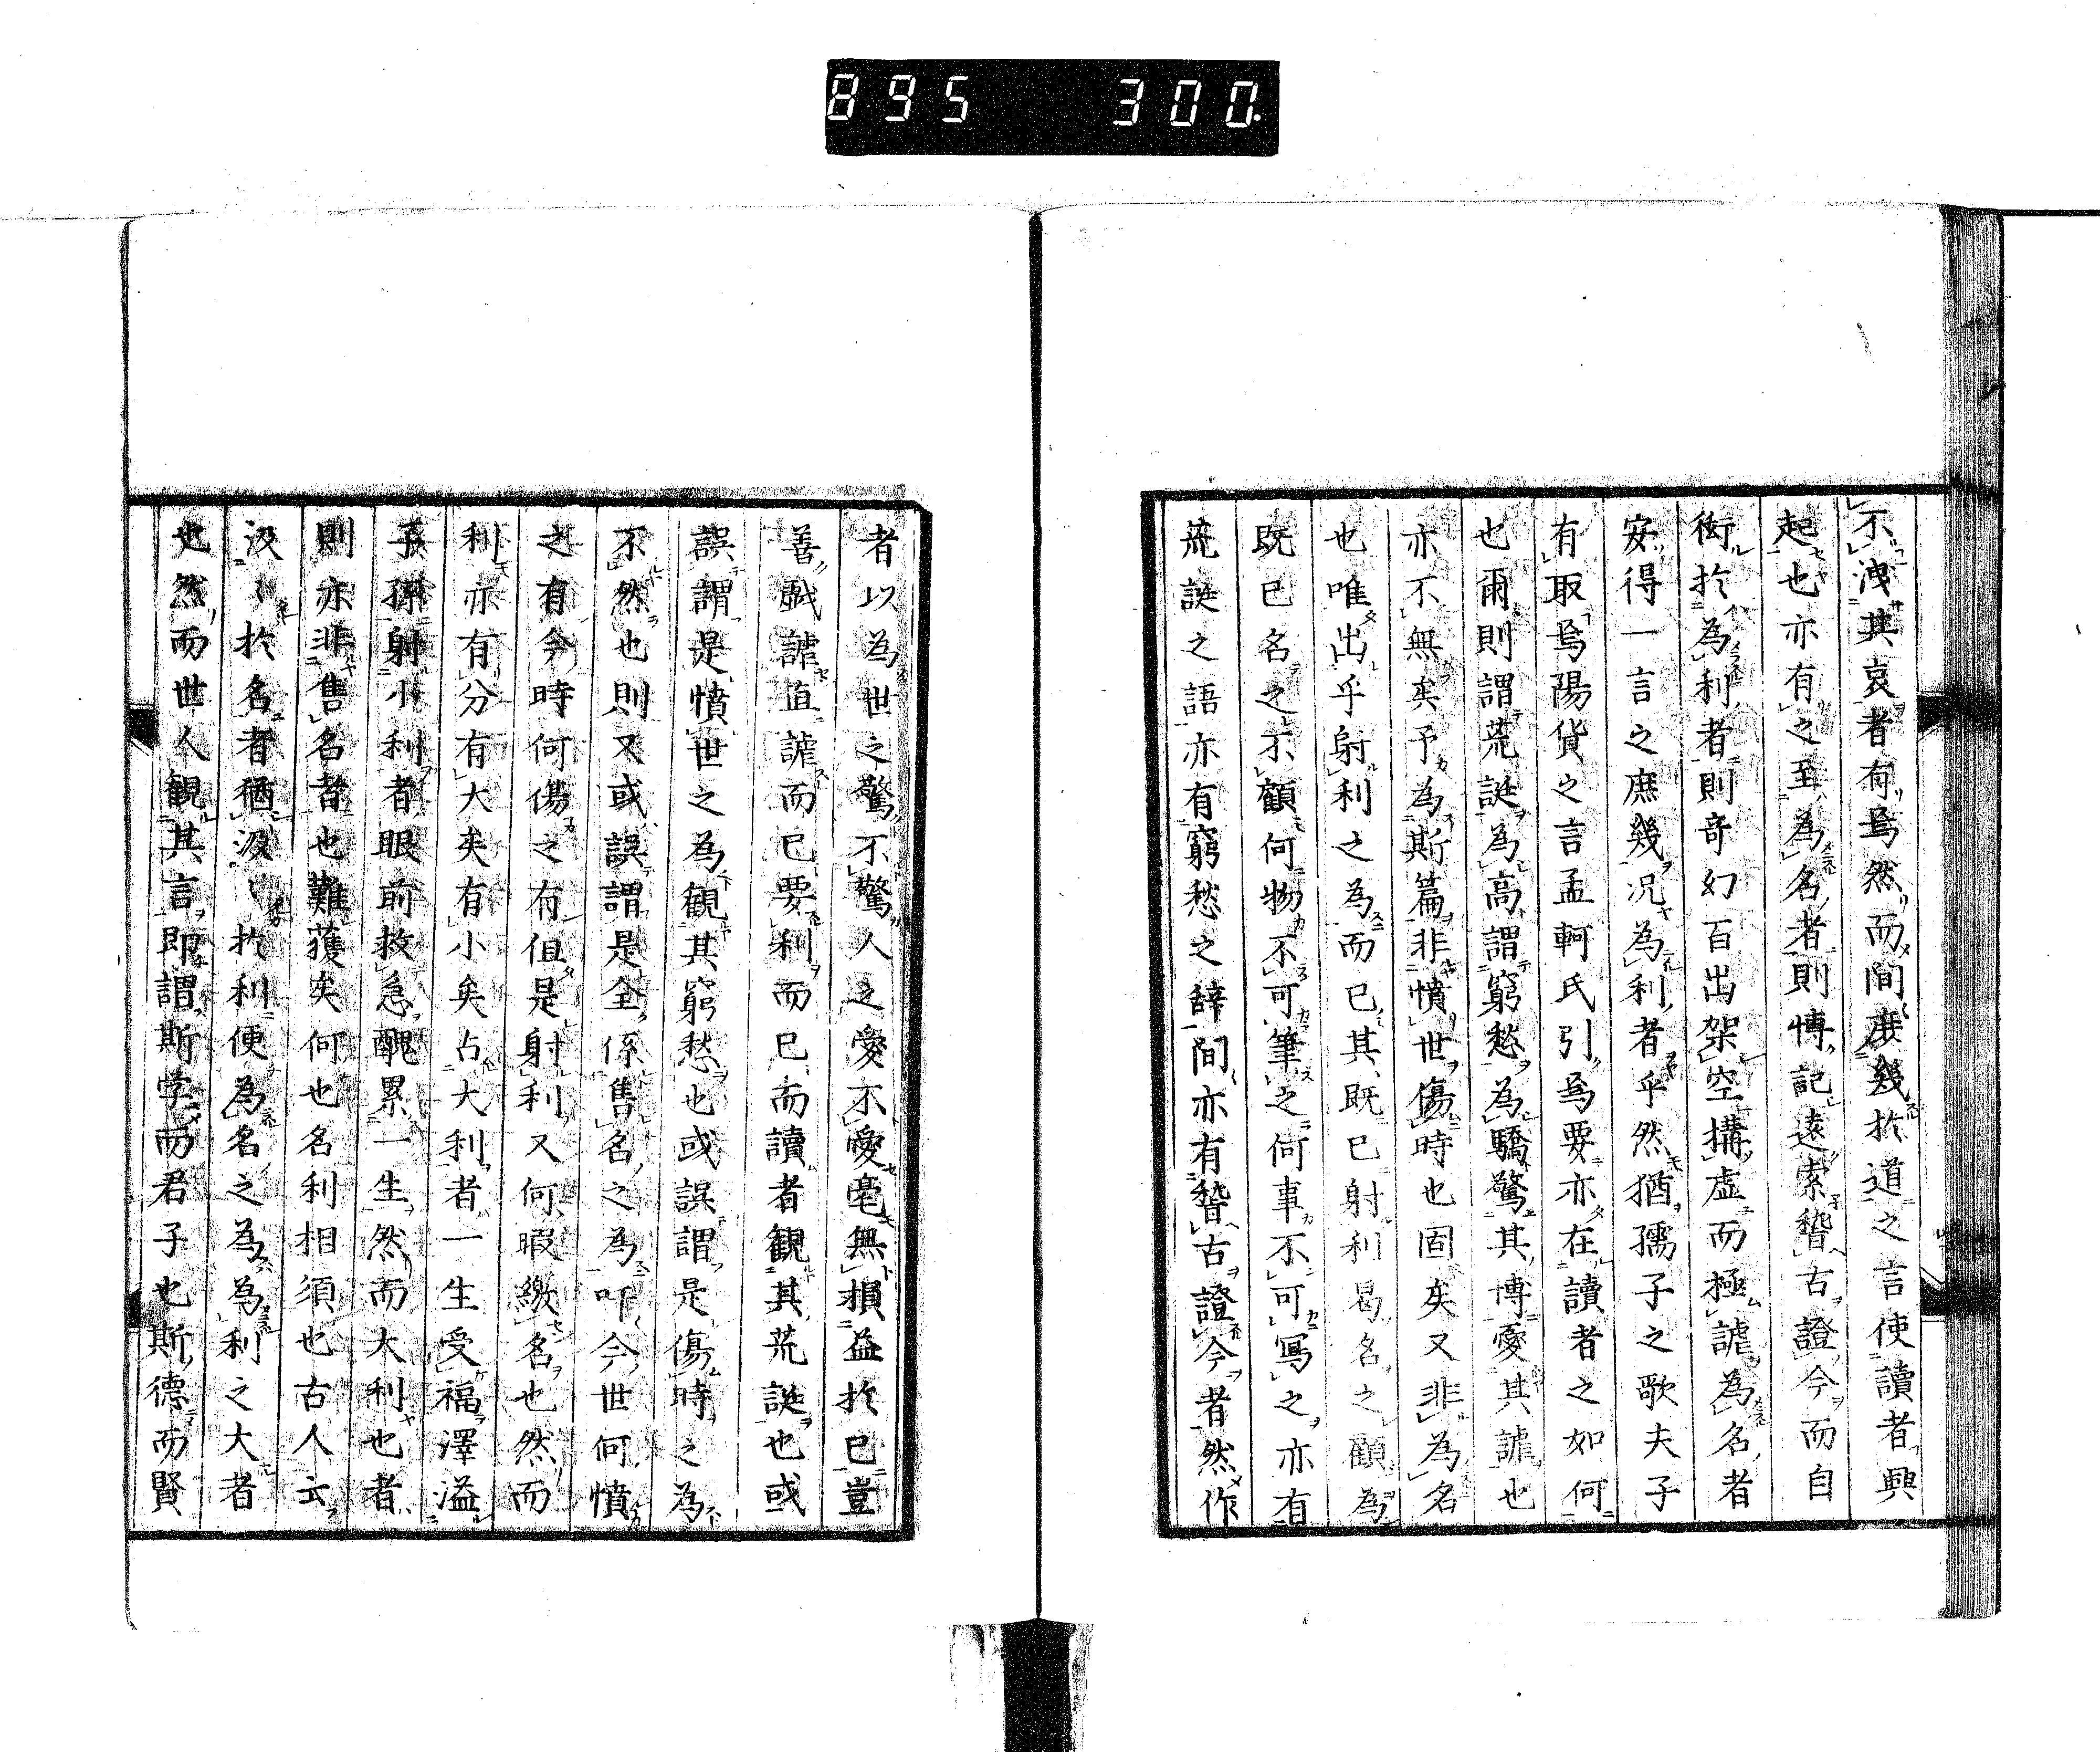 895 300.
不洩其哀者有焉然而間庶幾於道之言使讀者興
起也亦有之至為名者則博記遠索稽古證今而自
衒於為利者則奇幻百出架空構虛而極謔為名者
安得一言之庶幾况為利者乎然猶孺子之歌夫子
有取焉陽貨之言孟軻氏引焉要亦在讀者之如何
也爾則謂荒誕為高謂窮愁為驕驚其博愛其謔也
亦不無矣予為斯篇非憤世傷時也固矣又非為名
也唯出乎射利之為而已其既已射利曷名之顧為
既已名之不顧何物不可筆之何事不可寫之亦有
荒誕之語亦有窮愁之辞間亦有稽古證今者然作
者以為世之驚不驚人之愛不愛毫無損益於已豈
善戯謔直謔而已要利而已而讀者觀其荒誕也或
誤謂是憤世之為觀其窮愁也或誤謂是傷時之為
不然也則又或誤謂是全係售名之為吓今世何憤
之有今時何傷之有但是射利又何暇繳名也然而
利亦有分有大矣有小矣占大利者一生受福澤溢
子孫射小利者眼前救急醜累一生然而大利也者
則亦非售名者也難獲矣何也名利相須也古人云
汲〻於名者猶汲〻於利便為名之為為利之大者
也然而世人觀其言即謂斯学而君子也斯德而賢